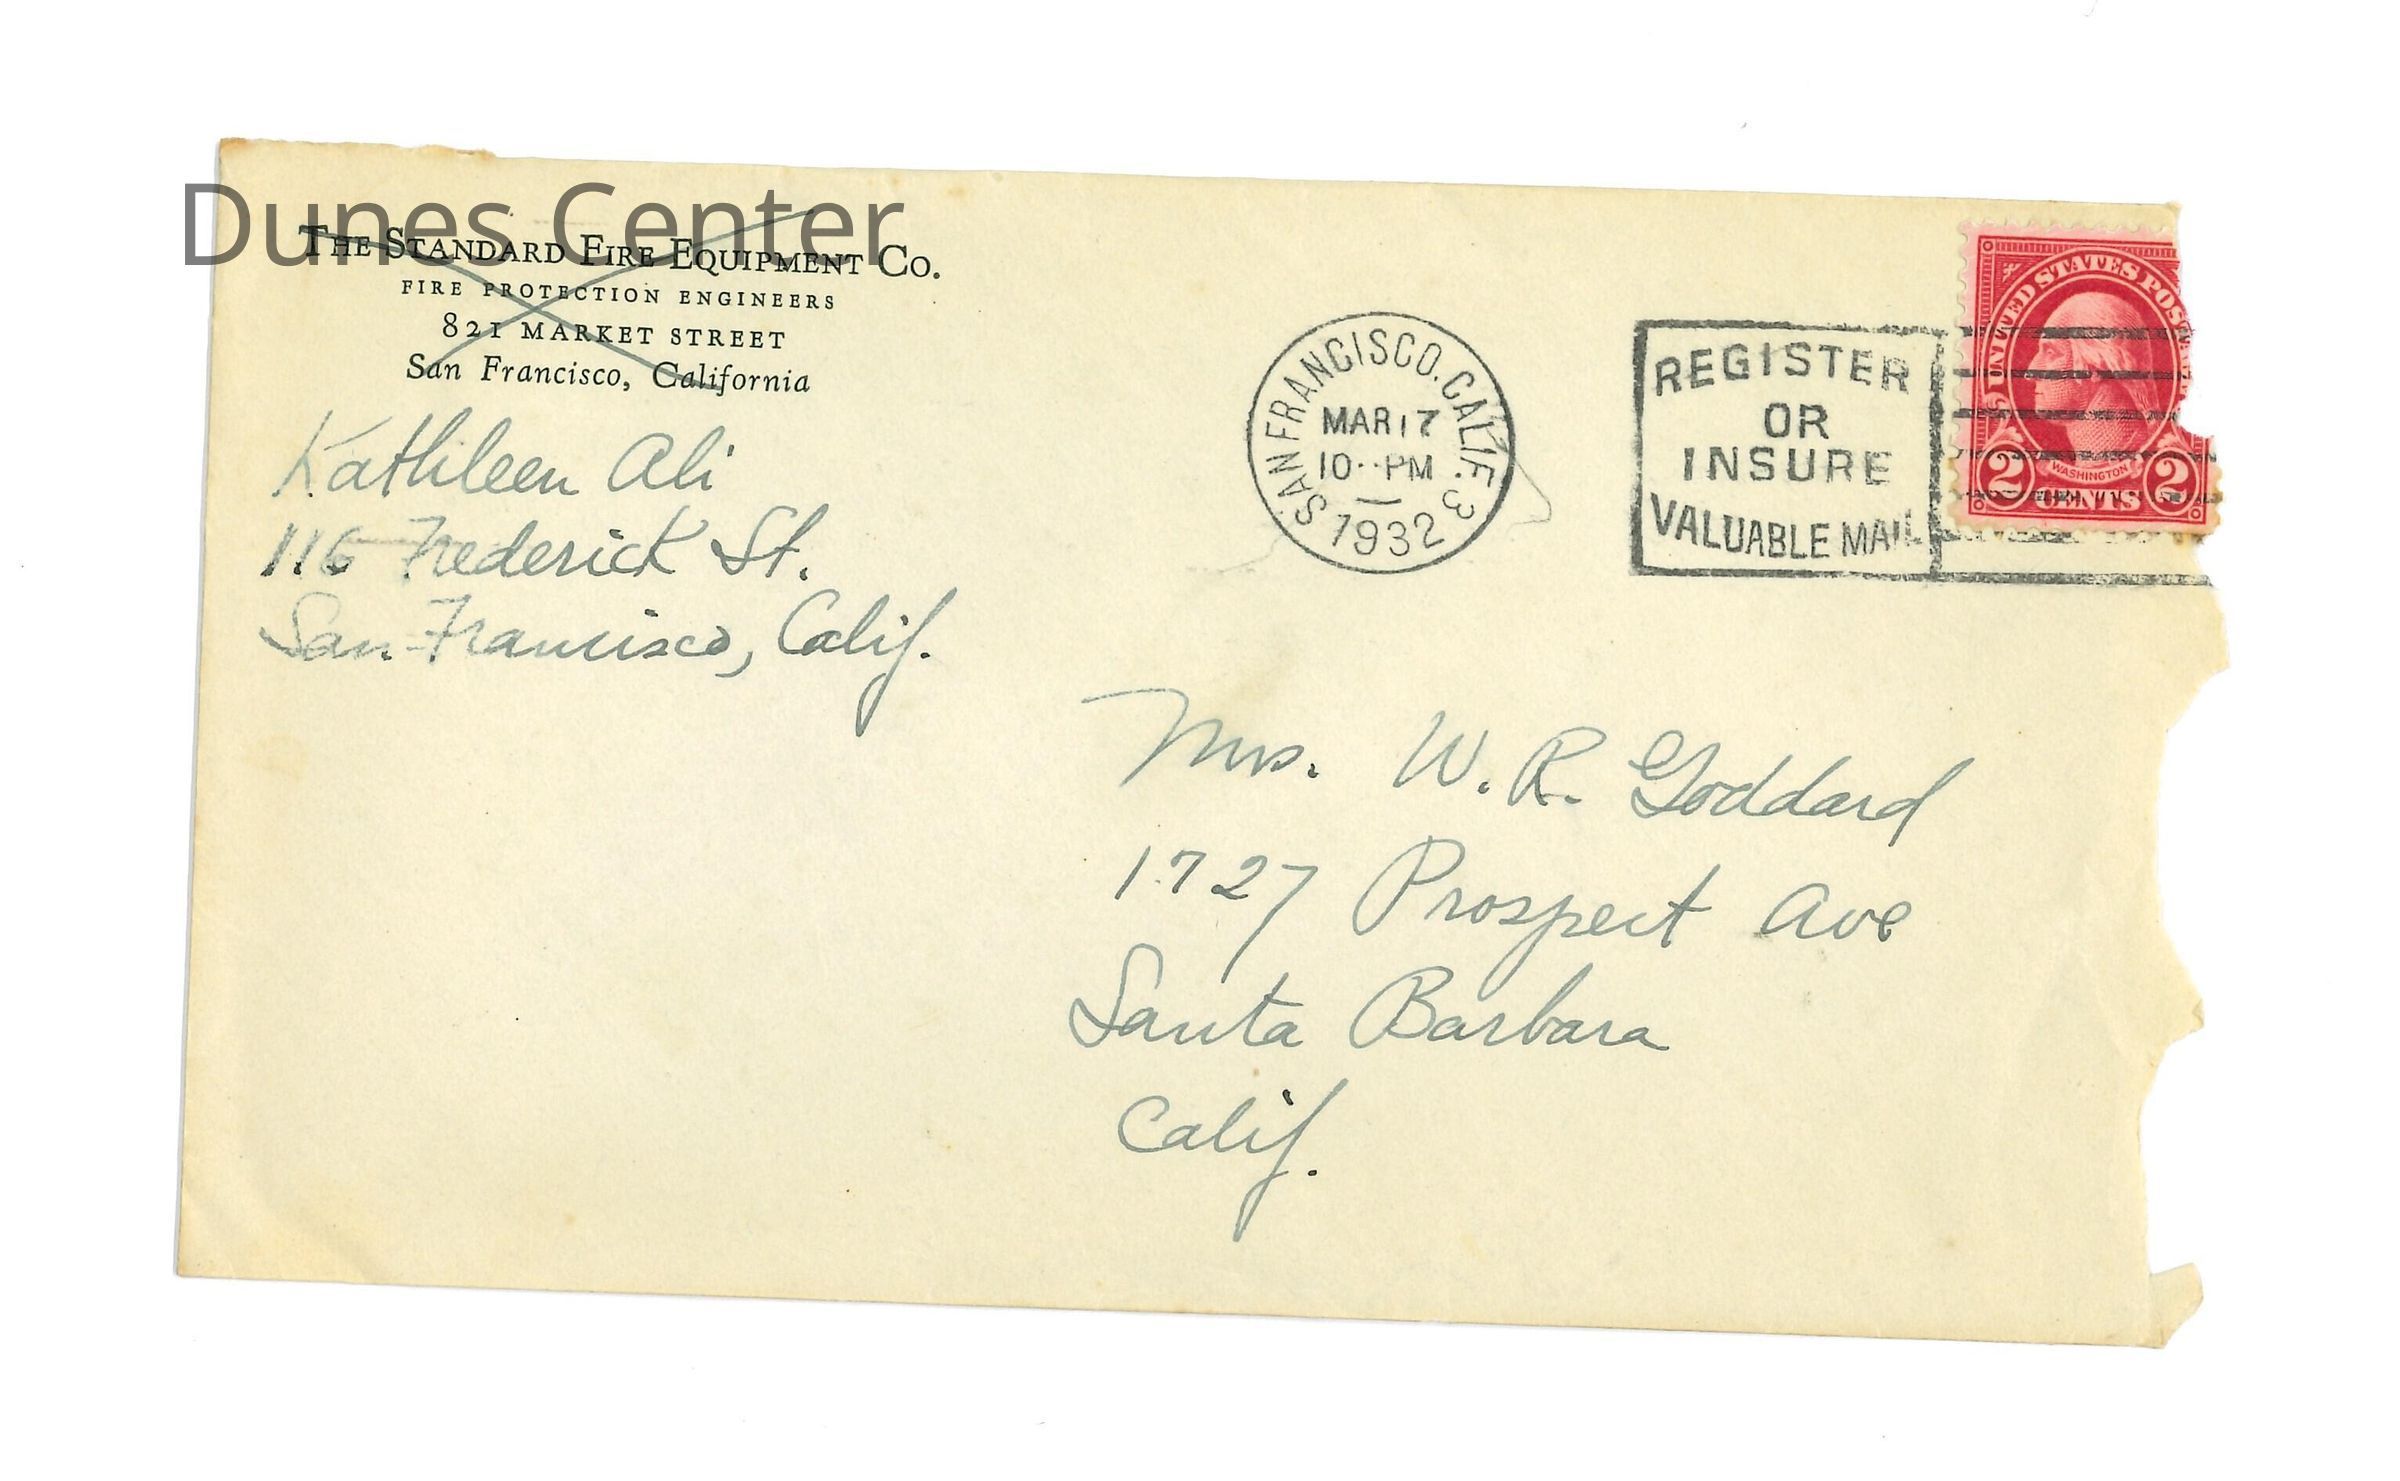 Dunes Center
THE STANDARD FIRE EQUIPMENT CO.
FIRE PROTECTION ENGINEERS
821 MARKET STREET
San Francisco, California
Kathleen Ali
116 Frederick St.
San Francisco, Calif.
SAN FRANCISCO, CALIF. 3
MAR 17
10 PM
1932
REGISTER
OR
INSURE
VALUABLE MAIL
UNITED STATES POS
WASHINGTON
2 CENTS 2
Mrs. W. R. Goddard
1727 Prospect Ave
Santa Barbara
Calif.